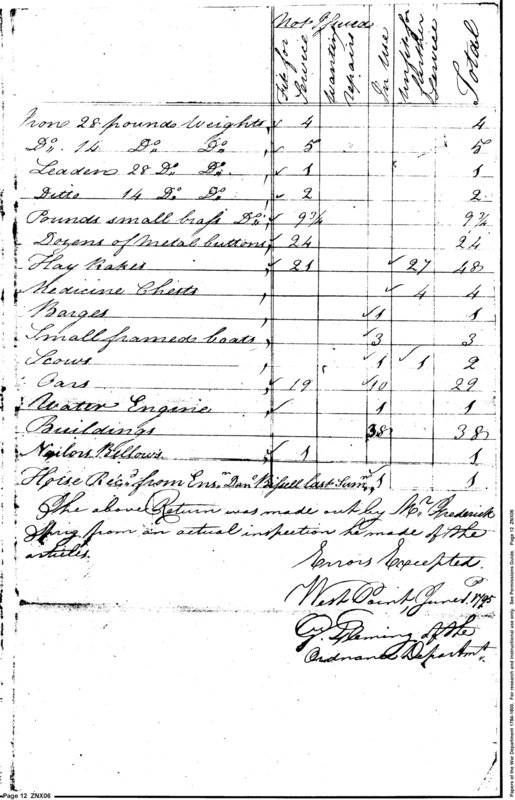 Not Issued
Fit for Service
Wanting repairs
In Use
Unfit for further Service
Total
Iron 28 pounds Weights, 4 4
Do. 14 Do. Do. 5 5
Leaden 28 Do. Do. 1 1
Ditto 14 Do. Do. 2 2
Pounds small brass Do. 9 3/4 9 3/4
Dozens of Metal buttons, 24 24
Hay Rakes, 21 27 48
Medicine Chests, 4 4
Barges, 1 1
Small framed boats, 3 3
Scows, 1 1 2
Oars, 19 10 29
Water Engine, 1 1
Buildings 38 38
Nailors Bellows, 1 1
Recd. from Ensn. Dan Bissell last Sumr. 1 1
The above Return was made out by Mr. Frederick
from an actual inspection he made of the
articles.
Errors Excepted.
West Point, June 1795
G. Fleming of the
Ordnance Departmt.
Page 12 ZNX06
Papers of the War Department 1784-1800. For research and instructional use only. See Permissions Guide. Page 12 ZNX06